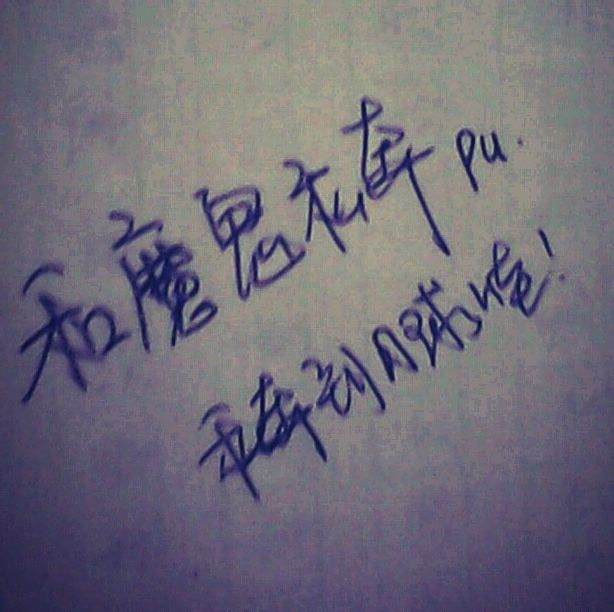 和魔鬼私奔 pu.
私奔到月球上吃!